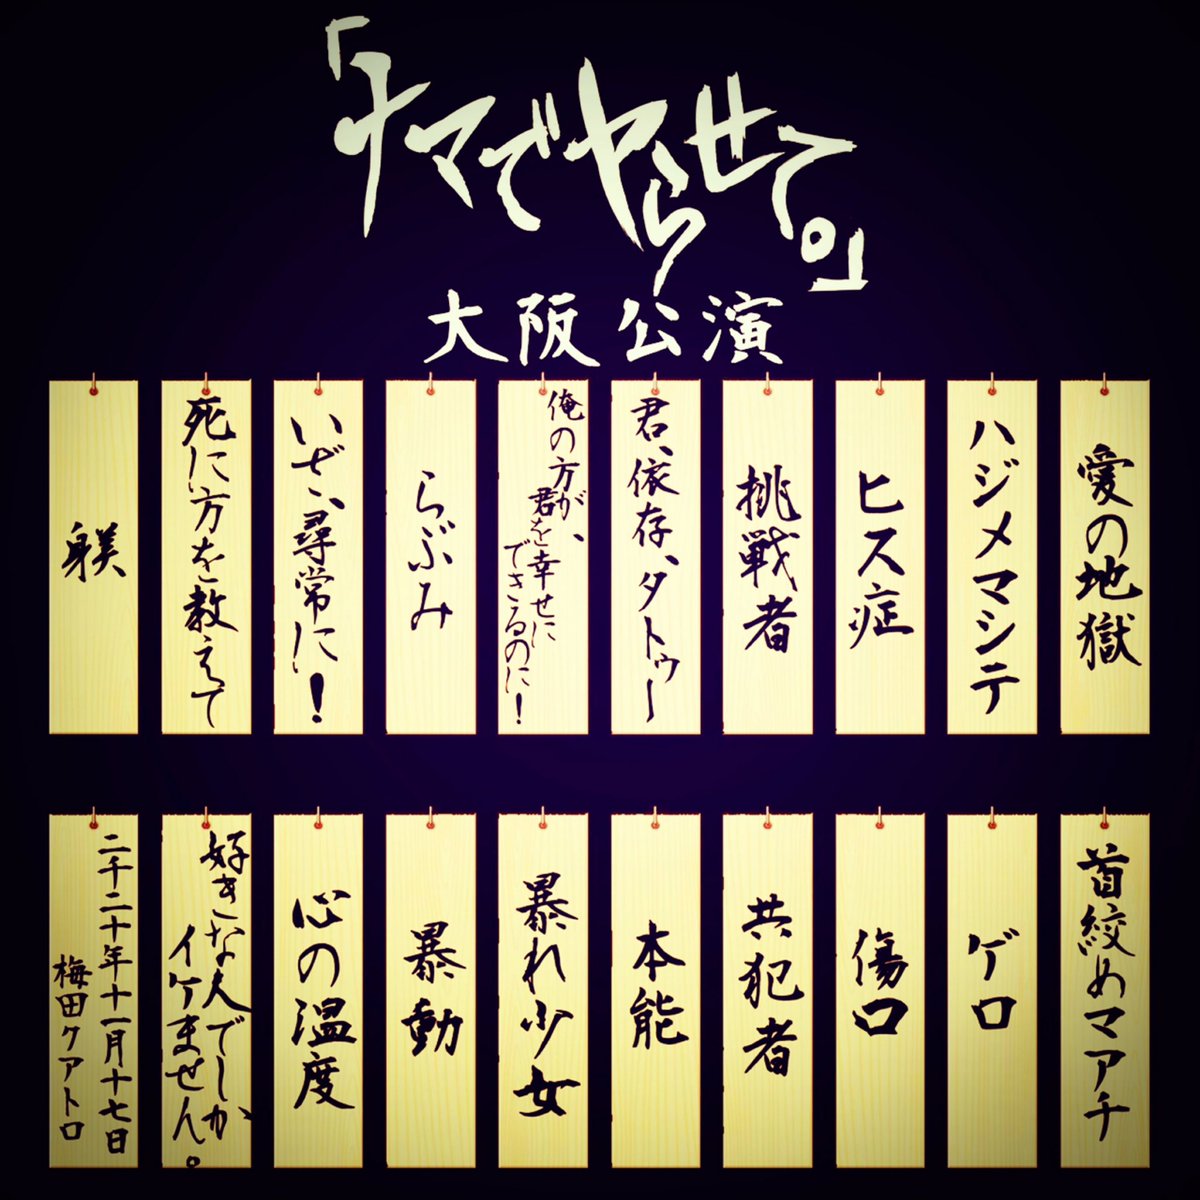 「ナマでヤらせて。」
大阪公演
愛の地獄
ハジメマシテ
ヒス症
挑戦者
君、依存、タトゥー
俺の方が、
君を幸せに
できるのに!
らぶみ
いざ、尋常に!
死に方を教えて
躾
首絞めマアチ
ゲロ
傷口
共犯者
本能
暴れ少女
暴動
心の温度
好きな人でしか
イケません。
二千二十年十一月十七日
梅田クアトロ